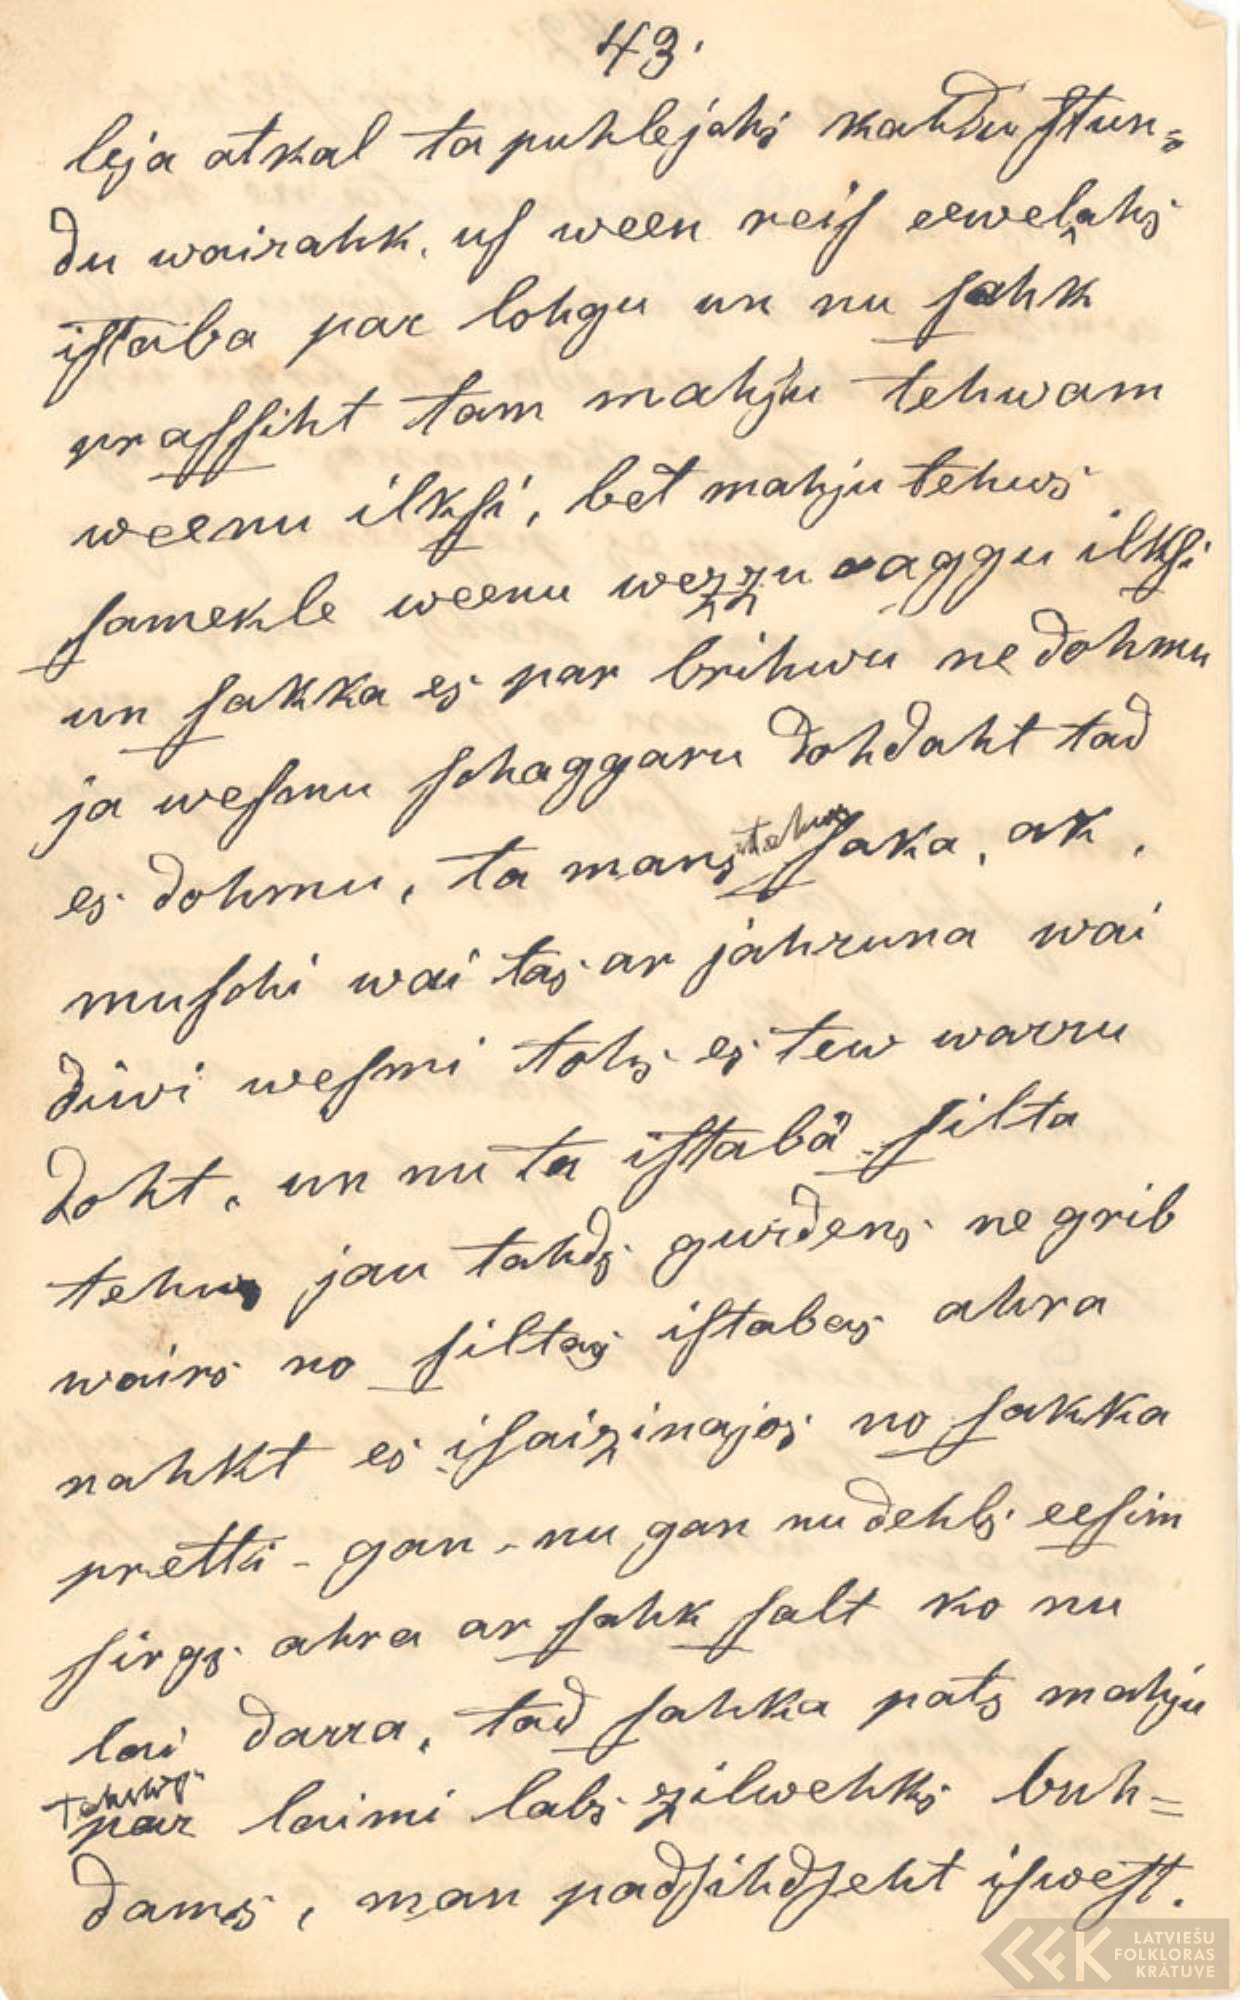 43.
leja atkal ta puhlejahs kahdu ſtun=
du wairahk. uſ ween reiſ eewelahs
iſtaba par lohgu un nu ſahk
praſſiht tam mahju tehwam
weenu ilkſi, bet mahju tehws
ſamekle weenu wezzu raggu ilkſi
un ſakka es par brihwu ne dohmu
ja weſmu ſchaggaru dohdaht tad
es dohmu, ta mans tehws ſaka, ak,
muſchi wai tas ar jahruna wai
diwi weſmi tohs es tew warru
doht, un nu ta iſtabâ ſilta
tehws jau tahds gurdens ne grib
wairs no ſiltas iſtabas ahra
nahkt es iſaizinajos no ſakka
pretti - gan - nu gan nu dehls eeſim
ſirgs ahra ar ſahk ſalt ko nu
lai darra, tad ſahka pats mahju
tehws par laimi labs zilwehks buh=
dams, man padſihdſeht iſweſt.
LATVIEŠU
FOLKLORAS
KRĀTUVE